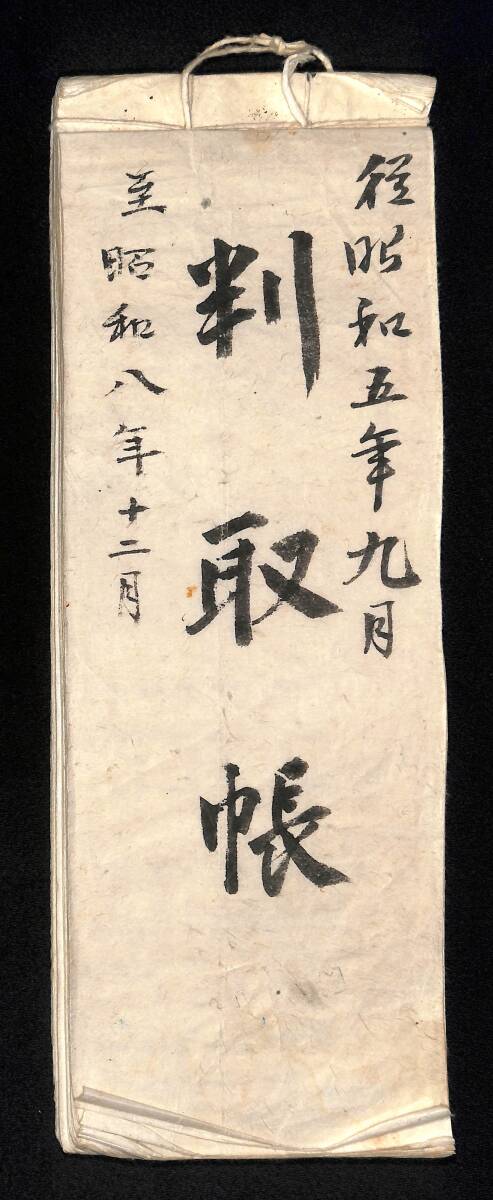 從昭和五年九月
判取帳
至昭和八年十二月